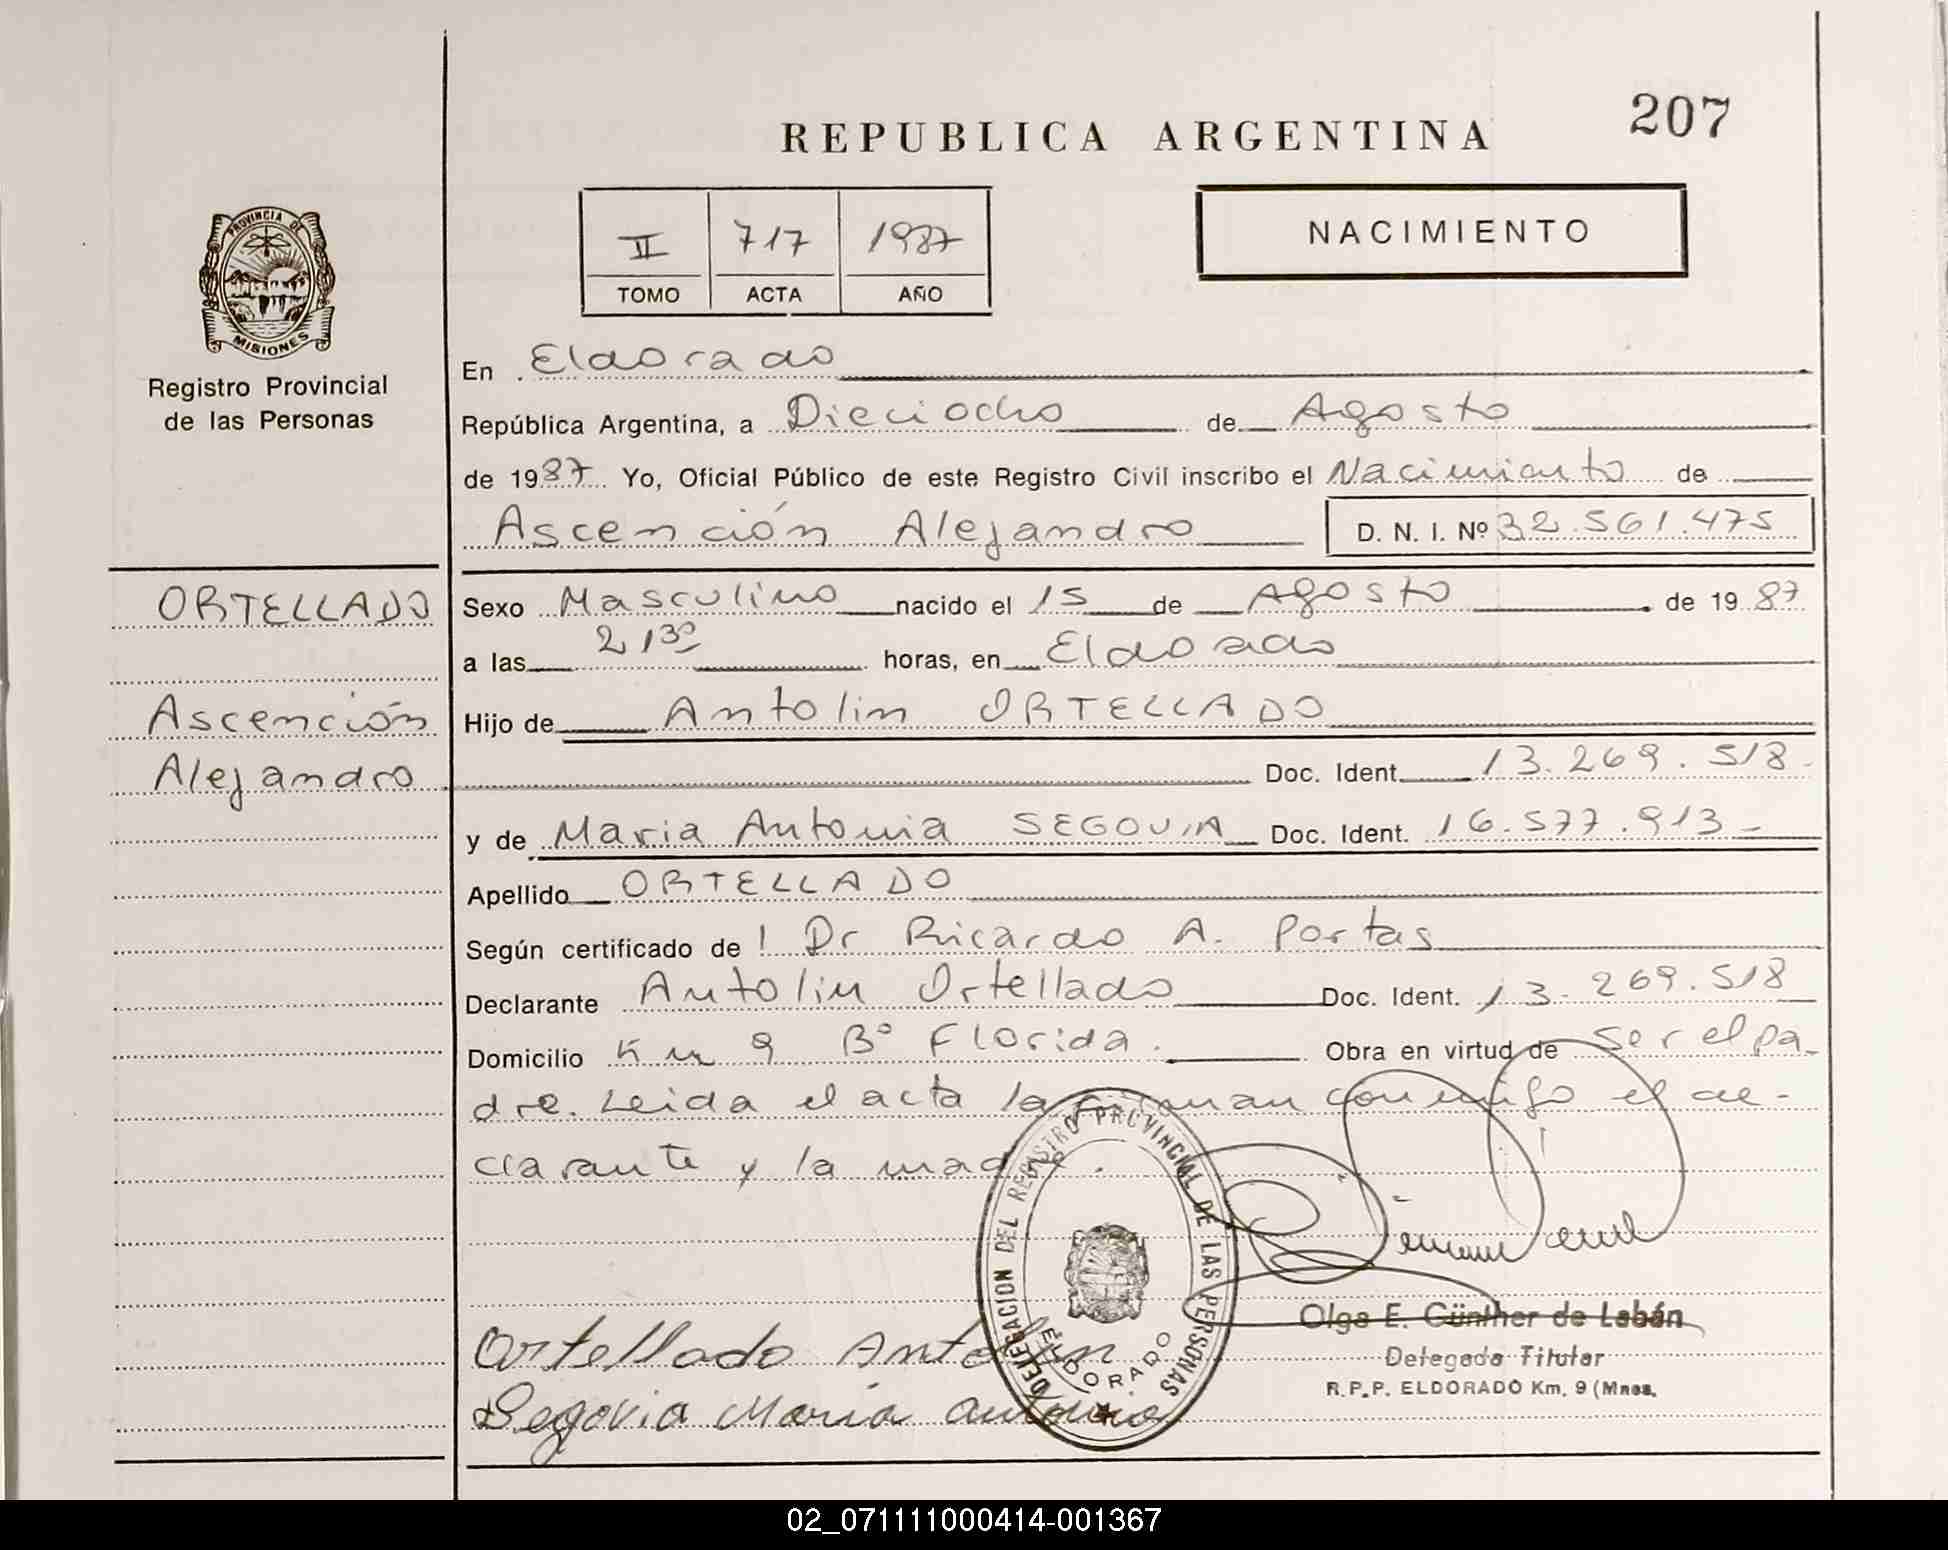 REPUBLICA ARGENTINA
207
PROVINCIA DE
MISIONES
Registro Provincial
de las Personas
II 717 1987
TOMO ACTA AÑO
NACIMIENTO
En Eldorado
República Argentina, a Dieciocho de Agosto
de 1987 Yo, Oficial Público de este Registro Civil inscribo el Nacimiento de
Ascención Alejandro D. N. I. Nº 32.561.475
ORTELLADO
Ascención
Alejandro
Sexo Masculino nacido el 15 de Agosto de 1987
a las 21 30 horas, en Eldorado
Hijo de Antolin ORTELLADO
Doc. Ident. 13.269.518-
y de Maria Antonia SEGOVIA Doc. Ident. 16.577.913-
Apellido ORTELLADO
Según certificado de ! Dr Ricardo A. Portas
Declarante Antolin Ortellado Doc. Ident. 13.269.518
Domicilio Km 9 Bº Florida. Obra en virtud de ser el pa-
dre. Leida el acta la firman conmigo el de-
clarante y la madre.
DELEGACION DEL REGISTRO PROVINCIAL DE LAS PERSONAS
ELDORADO
Olga E. Günther de Labán
Delegada Titular
R.P.P. ELDORADO Km. 9 (Mnes.
Ortellado Antolin
Segovia Maria Antonia
02_071111000414-001367